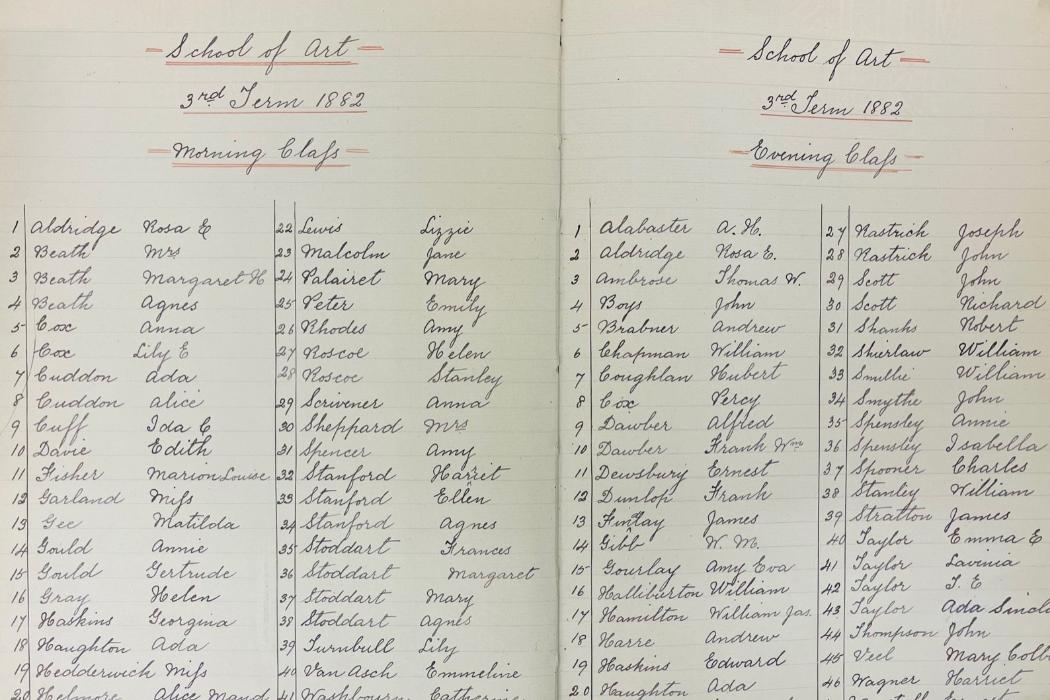 School of Art
3rd Term 1882
Morning Class
1 Aldridge Rosa E
2 Beath Mrs
3 Beath Margaret H
4 Beath Agnes
5 Cox Anna
6 Cox Lily E
7 Cuddon Ada
8 Cuddon Alice
9 Cuff Ida C
10 Davie Edith
11 Fisher Marion Louise
12 Garland Miss
13 Gee Matilda
14 Gould Annie
15 Gould Gertrude
16 Gray Helen
17 Haskins Georgina
18 Haughton Ada
19 Hedderwick Miss
20 Helmore Alice Maud
22 Lewis Lizzie
23 Malcolm Jane
24 Palairet Mary
25 Peter Emily
26 Rhodes Amy
27 Roscoe Helen
28 Roscoe Stanley
29 Scrivener Anna
30 Sheppard Mrs
31 Spencer Amy
32 Stanford Harriet
33 Stanford Ellen
34 Stanford Agnes
35 Stoddart Frances
36 Stoddart Margaret
37 Stoddart Mary
38 Stoddart Agnes
39 Turnbull Lily
40 Van Asch Emmeline
41 Washbourn Catherine
School of Art
3rd Term 1882
Evening Class
1 Alabaster A. H.
2 Aldridge Rosa E.
3 Ambrose Thomas W.
4 Boys John
5 Brabner Andrew
6 Chapman William
7 Coughlan Hubert
8 Cox Percy
9 Dawber Alfred
10 Dawber Frank Wm
11 Dewsbury Ernest
12 Dunlop Frank
13 Finlay James
14 Gibb W. M.
15 Gourlay Amy Eva
16 Halliburton William
17 Hamilton William Jas.
18 Harre Andrew
19 Haskins Edward
20 Haughton Ada
27 Rastrick Joseph
28 Rastrick John
29 Scott John
30 Scott Richard
31 Shanks Robert
32 Shierlaw William
33 Smillie William
34 Smythe John
35 Spensley Annie
36 Spensley Isabella
37 Spooner Charles
38 Stanley William
39 Stratton James
40 Taylor Emma E
41 Taylor Lavinia
42 Taylor T. E
43 Taylor Ada Sincl
44 Thompson John
45 Veel Mary Colb
46 Wagner Harriet